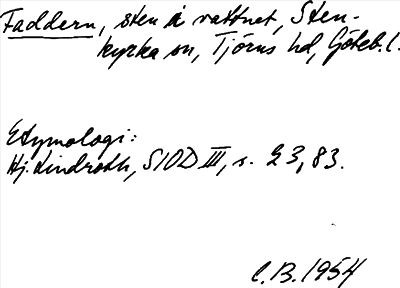 Faddern, sten i vattnet, Sten-
kyrka sn, Tjörns hd, Göteb. l.
Etymologi:
Hj. Lindroth, SIOD III, s. 23, 83.
C.B. 1954